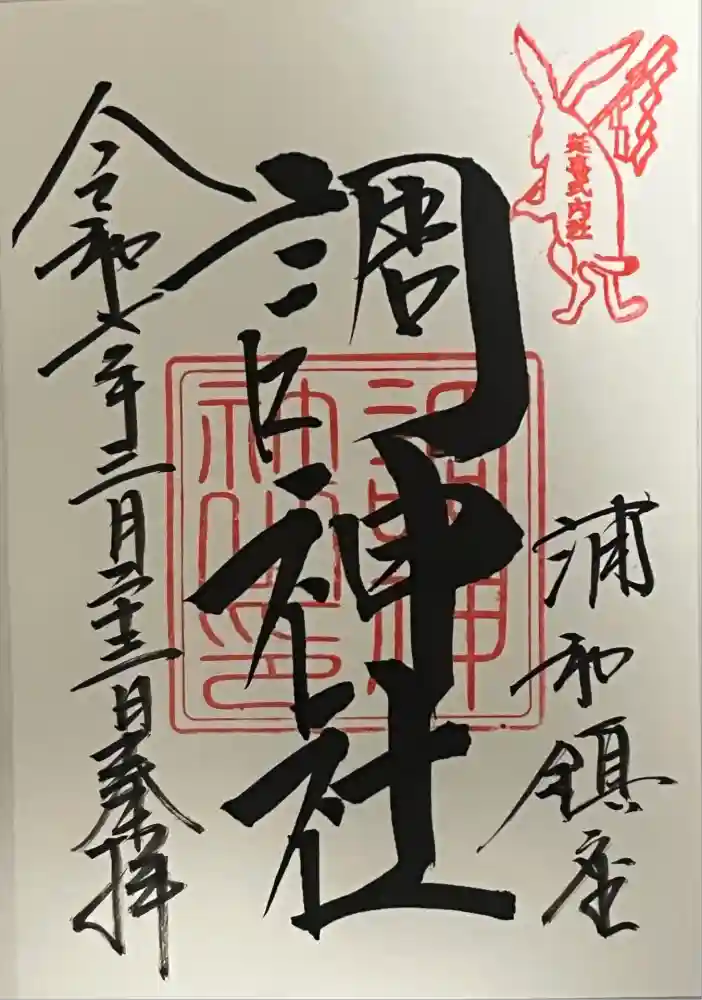 延喜式内社
浦和鎮座
調神社
調神社印
令和七年三月二十三日奉拝